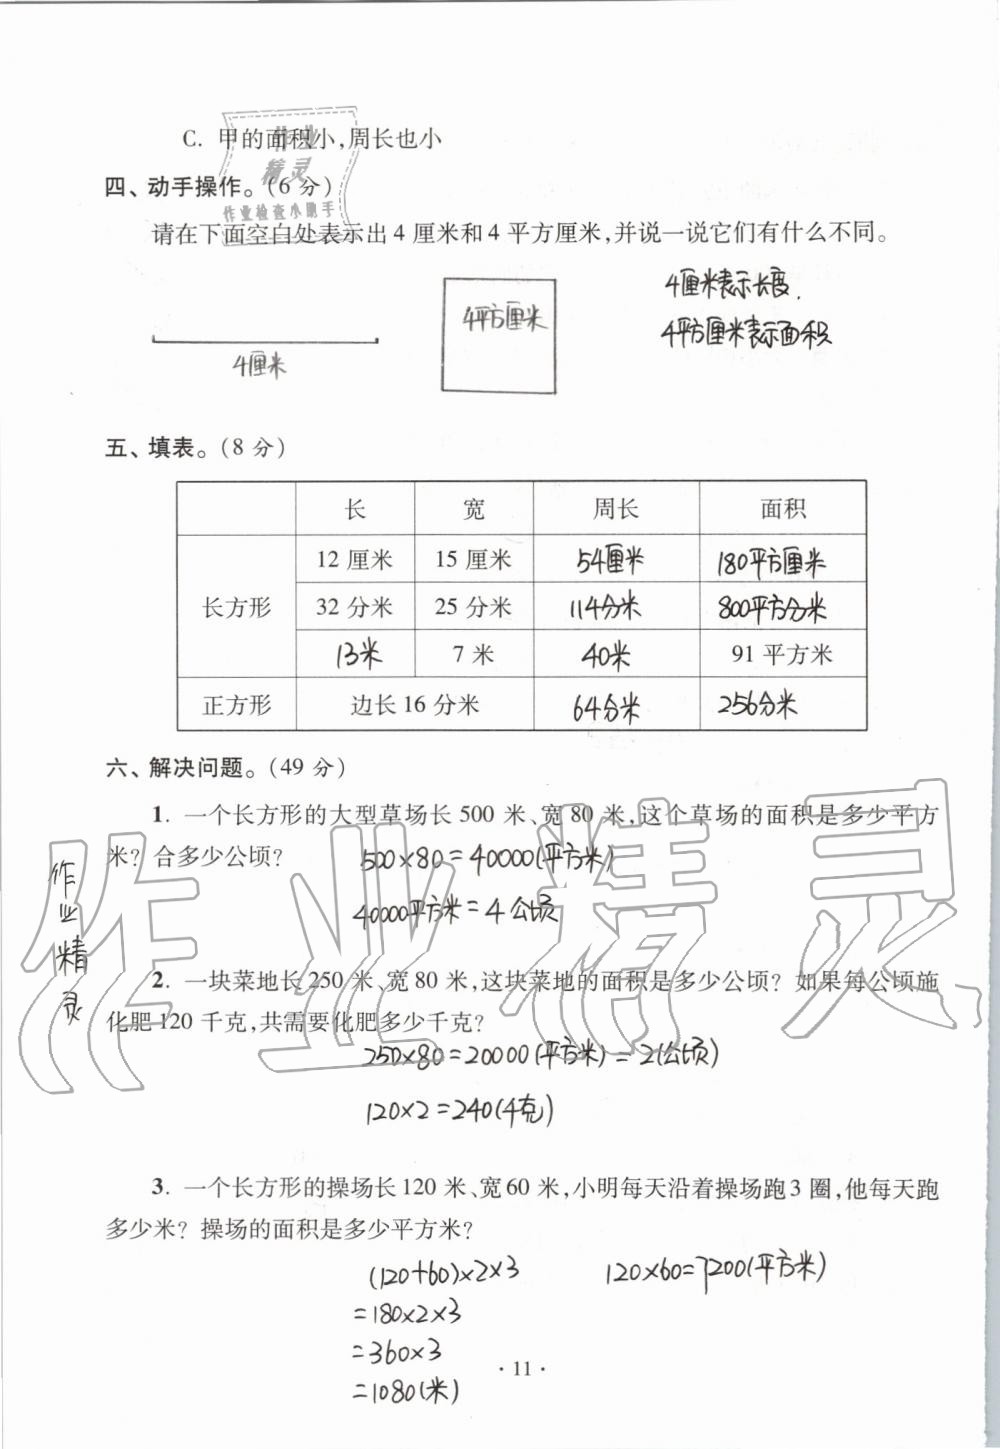 C. 甲的面积小,周长也小
作业
精灵
作业检查小助手
四、动手操作。(6 分)
请在下面空白处表示出 4 厘米和 4 平方厘米,并说一说它们有什么不同。
4厘米
4平方厘米
4厘米表示长度.
4平方厘米表示面积
五、填表。(8 分)
长 宽 周长 面积
长方形
12 厘米 15 厘米 54厘米 180平方厘米
32 分米 25 分米 114分米 800平方分米
13米 7 米 40米 91 平方米
正方形 边长 16 分米 64分米 256分米
六、解决问题。(49 分)
1. 一个长方形的大型草场长 500 米、宽 80 米,这个草场的面积是多少平方
米? 合多少公顷?
500×80=40000(平方米)
40000平方米=4公顷
作业精灵
作业精灵
2. 一块菜地长 250 米、宽 80 米,这块菜地的面积是多少公顷? 如果每公顷施
化肥 120 千克,共需要化肥多少千克?
250×80=20000(平方米)=2(公顷)
120×2=240(千克)
3. 一个长方形的操场长 120 米、宽 60 米,小明每天沿着操场跑 3 圈,他每天跑
多少米? 操场的面积是多少平方米?
(120+60)×2×3
=180×2×3
=360×3
=1080(米)
120×60=7200(平方米)
· 11 ·